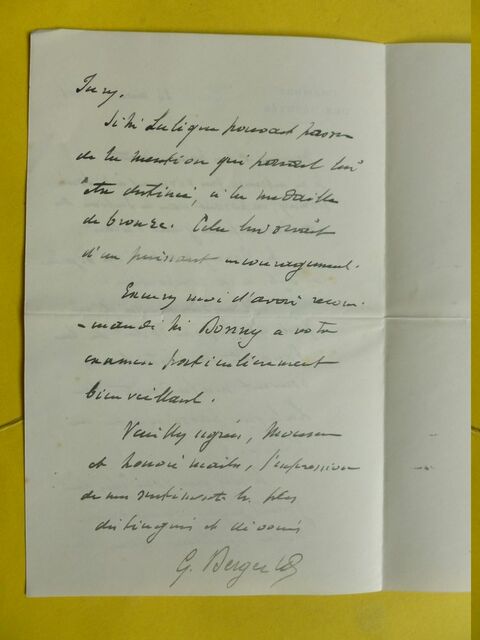 Jury.
Si M. Lalique pouvait passer
de la mention qui paraît lui
être destinée, à la médaille
de bronze. Cela lui serait
d'un puissant encouragement.
moi d'avoir recom-
-mandé M. Bonny a votre
examen particulièrement
bienveillant.
Veuillez agréer, Monsieur
et honoré maître, l'expression
de mes sentiments les plus
distingués et dévoués
G. Berger